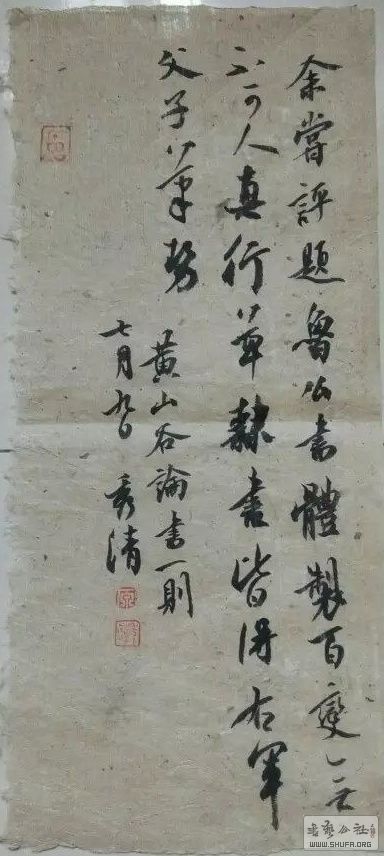 余嘗評題魯公書體製百變無
不可人真行草隸書皆得右軍
父子筆勢
黃山谷論書一則
七月九日 清
書藝公社
WWW.SHUFA.ORG